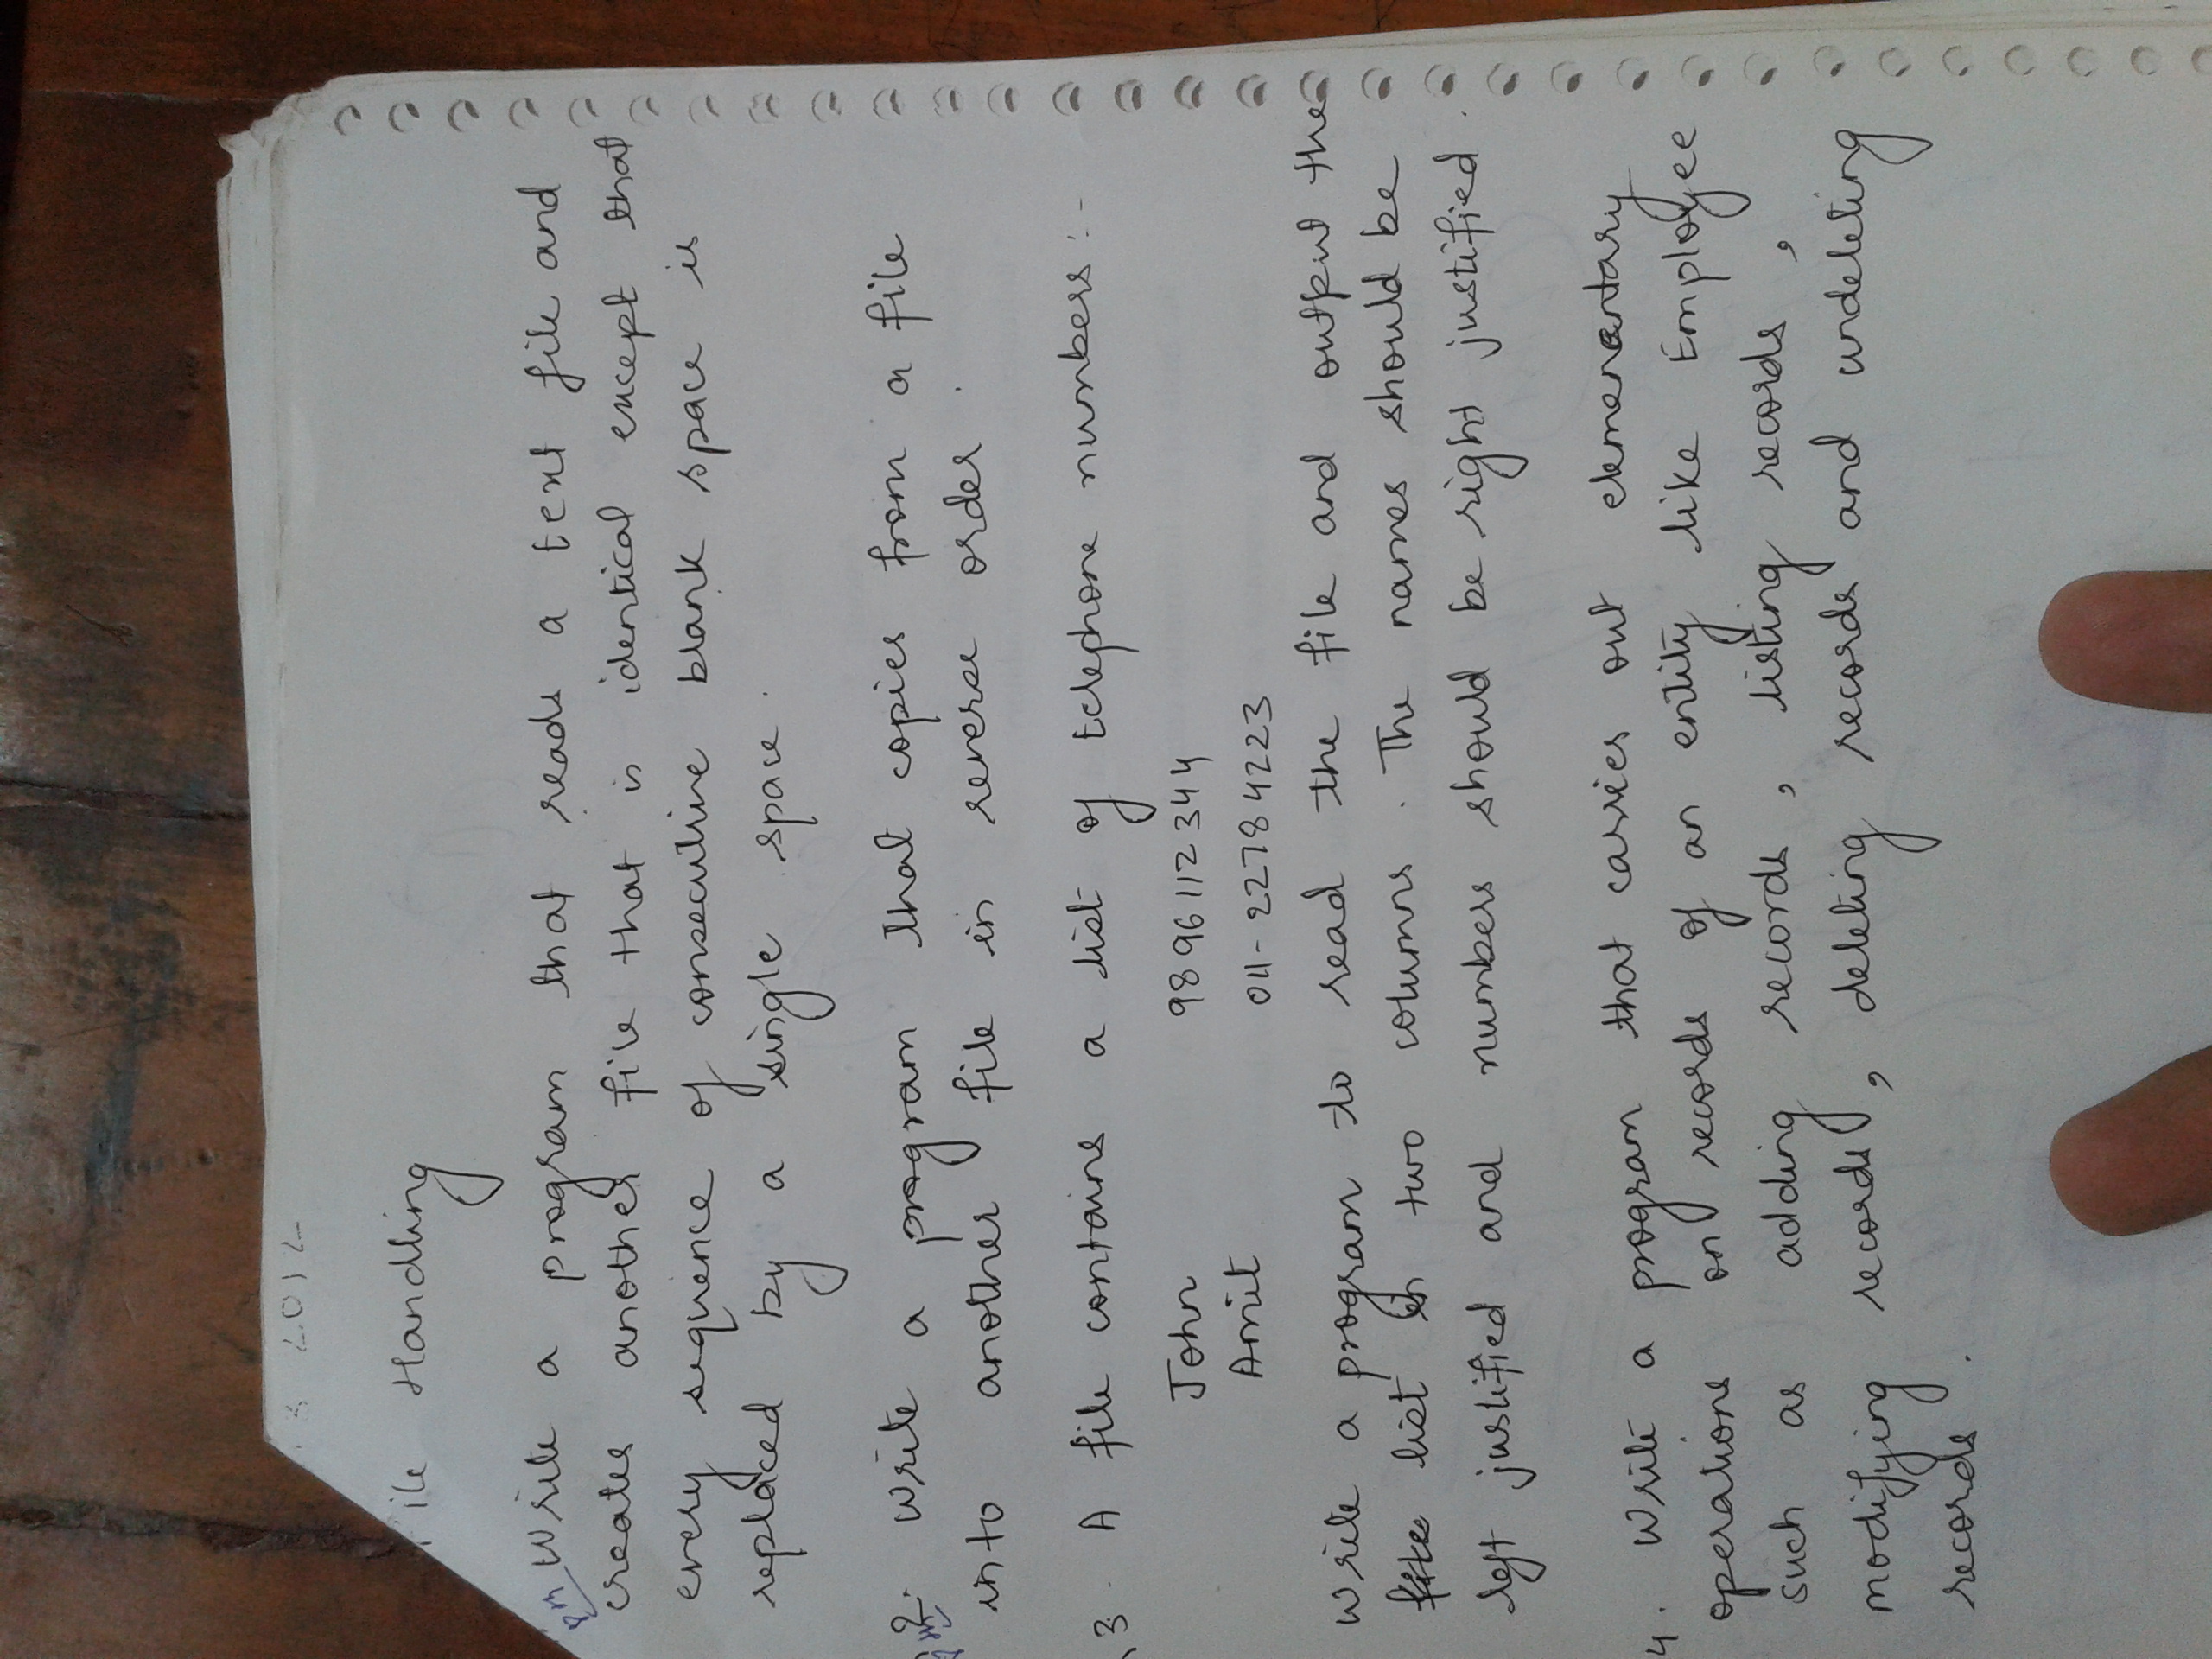 2012
ile Handling
Write a program that reads a text file and
creates another file that is identical except that
every sequence of consecutive blank space is
replaced by a single space.
2. Write a program that copies from a file
into another file in reverse order.
3. A file contains a list of telephone numbers :-
John 9896112344
Amit 011-22784223
Write a program to read the file and output the
list in two columns. The names should be
left justified and numbers should be right justified.
4. Write a program that carries out elemenantary
operations on records of an entity like Employee
such as adding records, listing records,
modifying records, deleting records and undeleting
records.